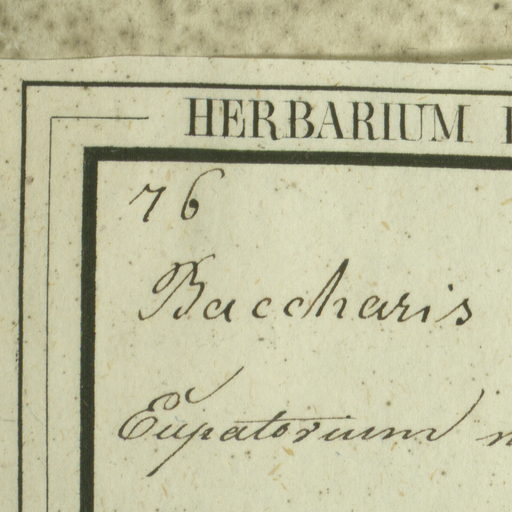 HERBARIUM
76
Baccharis
Eupatorium